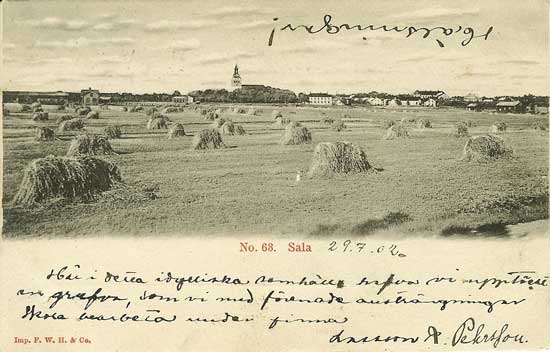 Hälsningar!
No. 63. Sala 29.7.02.
Här i detta idylliska samhälle hafva vi upptäckt
en grafva, som vi med förenade ansträngningar
skola bearbeta under firma
Imp. F. W. H. & Co.
Larsson & Pehrsson.